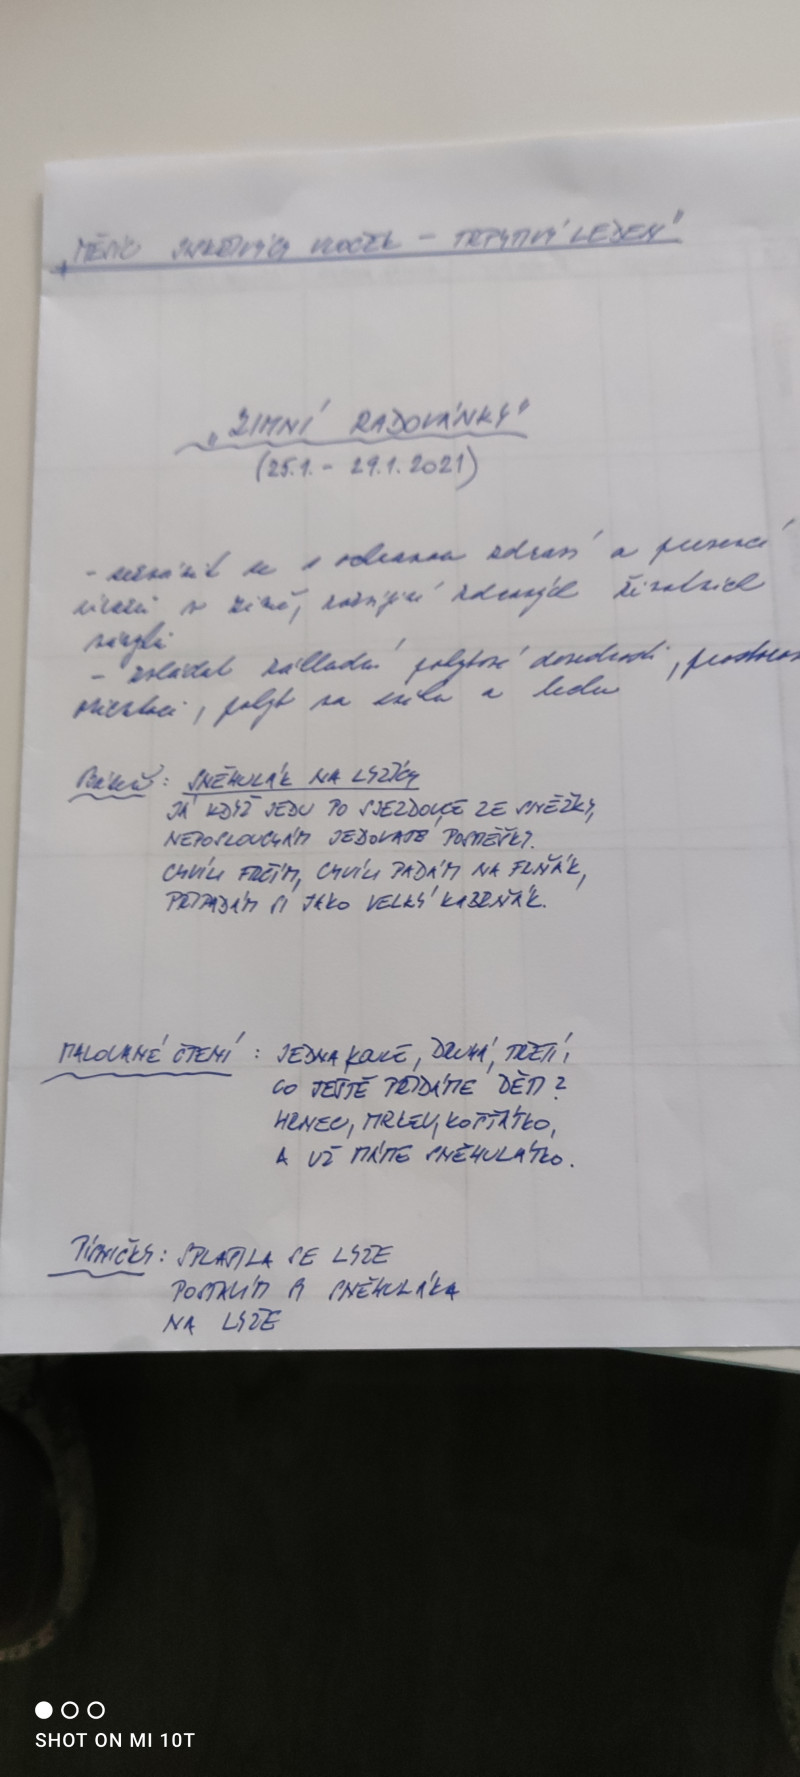 „MĚSÍC SNĚHOVÝCH VLOČEK - TŘPYTIVÝ LEDEN"
„ZIMNÍ RADOVÁNKY"
(25.1. - 29.1.2021)
- seznámit se s ochranou zdraví a prevencí
v zimě, rozvíjení zdravých životních
návyků
- zvládat základní pohybové dovednosti, prostorovou
orientaci, pohyb na sněhu a ledu
Básně: SNĚHULÁK NA LYŽÍCH
JÁ KDYŽ JEDU PO SJEZDOVCE ZE SNĚŽKY,
NEPOSLOUCHÁM JEDOVATÉ POSMĚŠKY.
CHVÍLI FRČÍM, CHVÍLI PADÁM NA FRŇÁK,
PŘIPADÁM SI JAKO VELKÝ KABRŇÁK.
MALOVANÉ ČTENÍ: JEDNA KOULE, DRUHÁ, TŘETÍ,
CO JEŠTĚ PŘIDÁME DĚTI?
HRNEC, MRKEV, KOŠŤÁTKO,
A UŽ MÁME SNĚHULÁTKO.
Písničky: SPLAŠILA SE LYŽE
POSTAVÍM SI SNĚHULÁKA
NA LYŽE
SHOT ON MI 10T